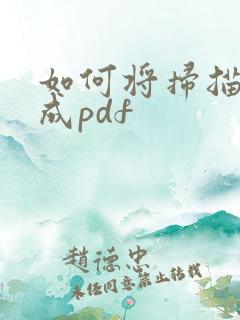 如何将扫描
成pdf
赵德忠
未经同意禁止转载